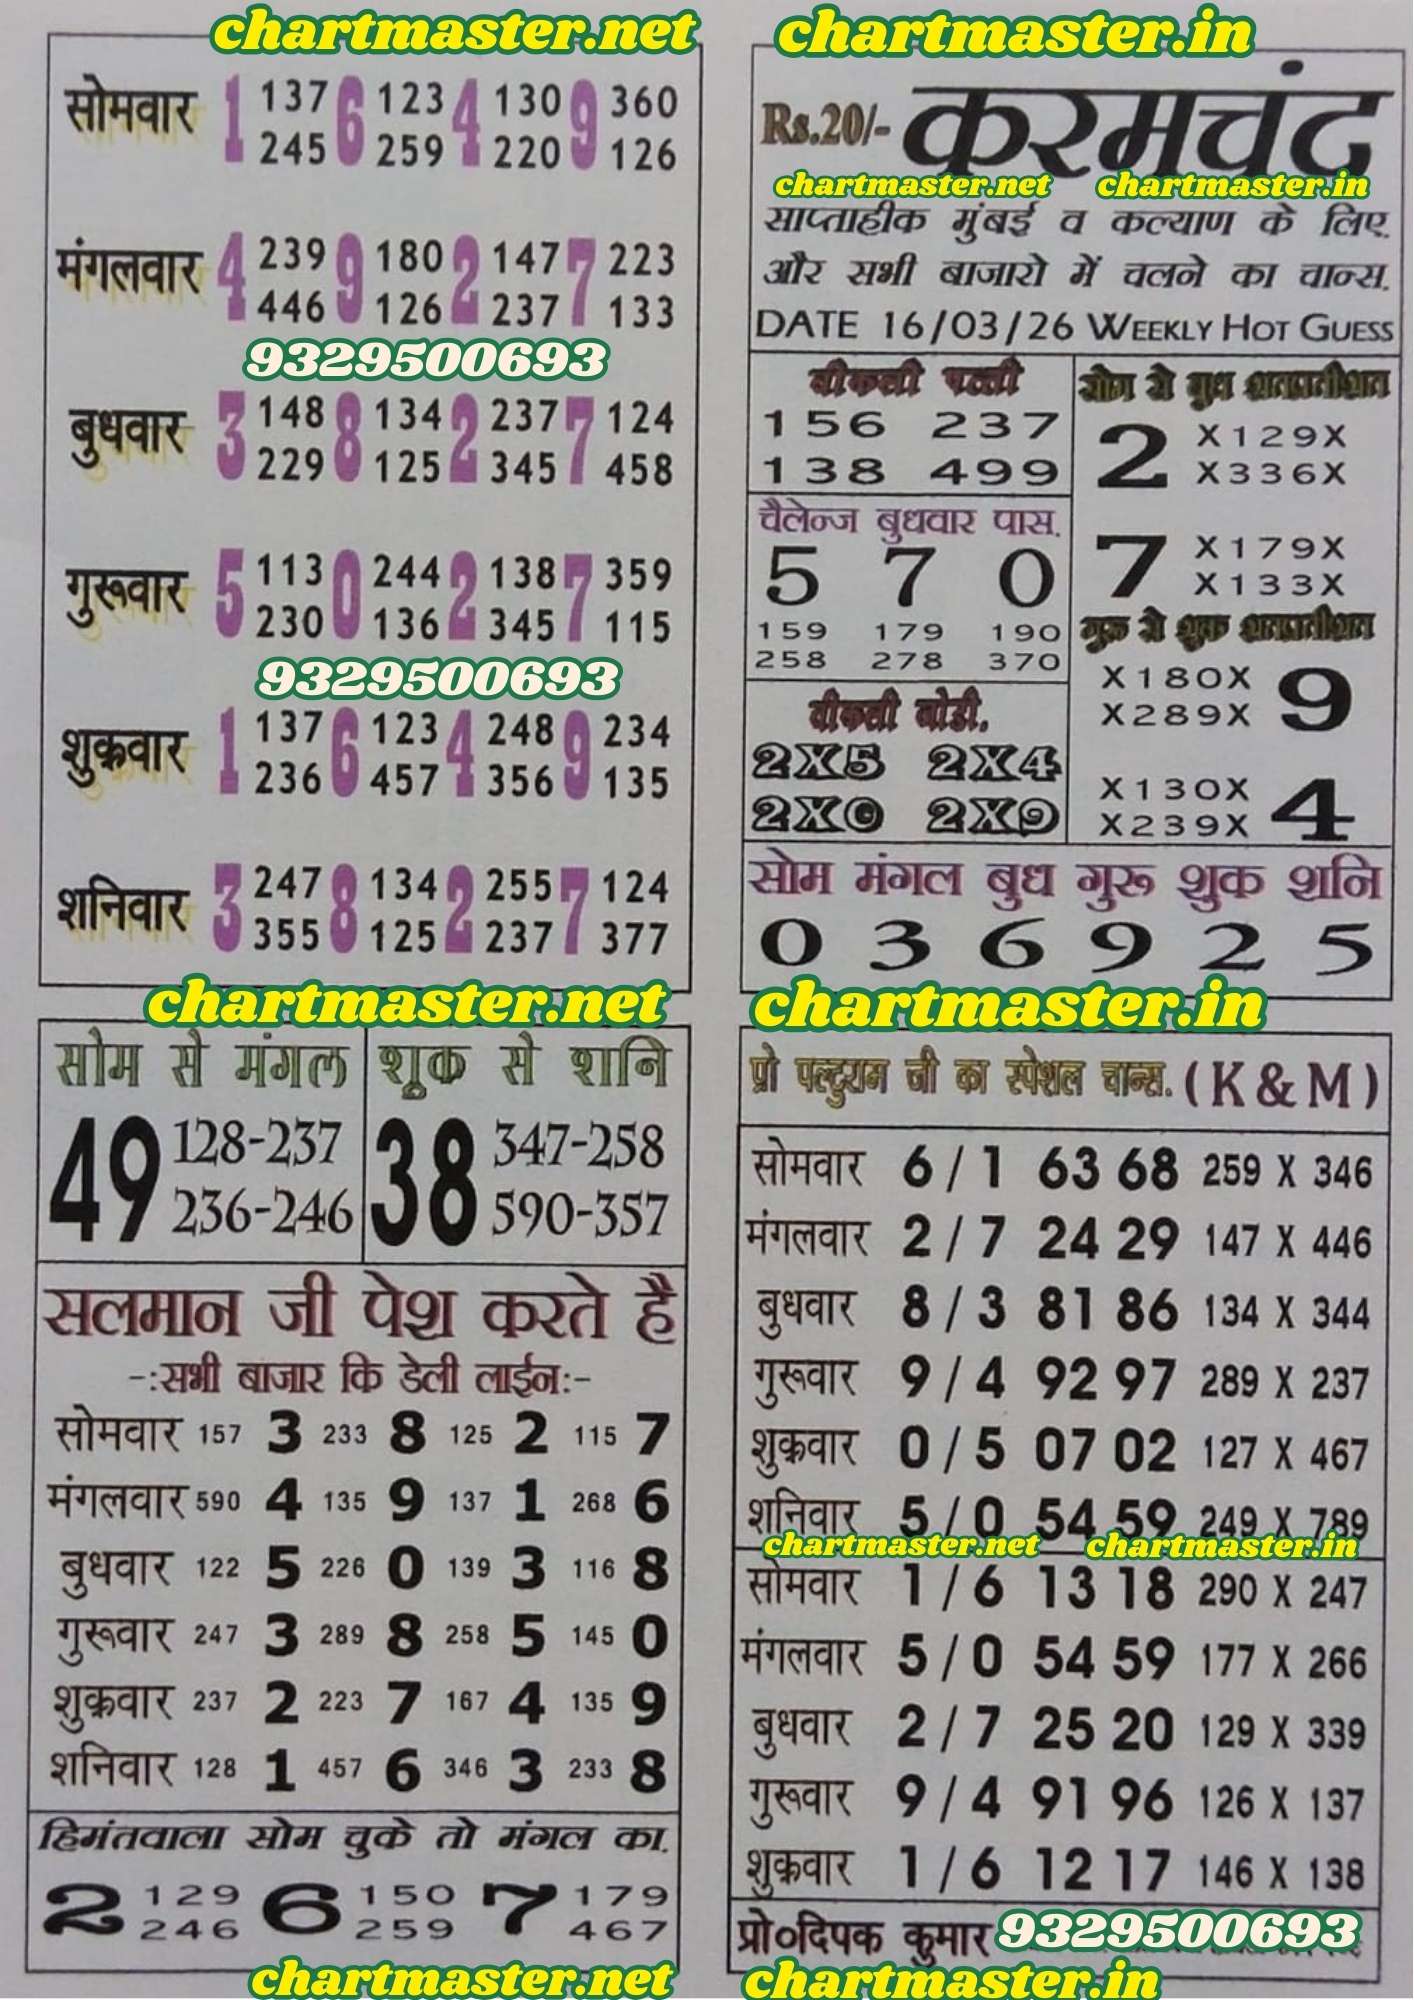 chartmaster.net
सोमवार 1 137 6 123 4 130 9 360
245 259 220 126
मंगलवार 4 239 9 180 2 147 7 223
446 126 237 133
9329500693
बुधवार 3 148 8 134 2 237 7 124
229 125 345 458
गुरूवार 5 113 0 244 2 138 7 359
230 136 345 115
9329500693
शुक्रवार 1 137 6 123 4 248 9 234
236 457 356 135
शनिवार 3 247 8 134 2 255 7 124
355 125 237 377
chartmaster.net
chartmaster.in
Rs.20/- करमचंद
chartmaster.net chartmaster.in
साप्ताहीक मुंबई व कल्याण के लिए.
और सभी बाजारो में चलने का चान्स.
DATE 16/03/26 WEEKLY HOT GUESS
वीकली पत्ती
156 237
138 499
चैलेन्ज बुधवार पास.
5 7 0
159 179 190
258 278 370
वीकली जोडी.
2X5 2X4
2X0 2X9
सोम से बुध शतप्रतीशत
2 X129X
X336X
7 X179X
X133X
गुरू से शुक्र शतप्रतीशत
X180X 9
X289X
X130X 4
X239X
सोम मंगल बुध गुरू शुक्र शनि
0 3 6 9 2 5
chartmaster.in
सोम सें मंगल
49 128-237
236-246
शुक्र सें शनि
38 347-258
590-357
सलमान जी पेश करते है
-:सभी बाजार कि डेली लाईन:-
सोमवार 157 3 233 8 125 2 115 7
मंगलवार 590 4 135 9 137 1 268 6
बुधवार 122 5 226 0 139 3 116 8
गुरूवार 247 3 289 8 258 5 145 0
शुक्रवार 237 2 223 7 167 4 135 9
शनिवार 128 1 457 6 346 3 233 8
हिमंतवाला सोम चुके तो मंगल का.
2 129 6 150 7 179
246 259 467
chartmaster.net
प्रो पल्टुराम जी का स्पेशल चान्स. (K&M)
सोमवार 6/1 63 68 259 X 346
मंगलवार 2/7 24 29 147 X 446
बुधवार 8/3 81 86 134 X 344
गुरूवार 9/4 92 97 289 X 237
शुक्रवार 0/5 07 02 127 X 467
शनिवार 5/0 54 59 249 X 789
chartmaster.net chartmaster.in
सोमवार 1/6 13 18 290 X 247
मंगलवार 5/0 54 59 177 X 266
बुधवार 2/7 25 20 129 X 339
गुरूवार 9/4 91 96 126 X 137
शुक्रवार 1/6 12 17 146 X 138
प्रो०दिपक कुमार 9329500693
chartmaster.in